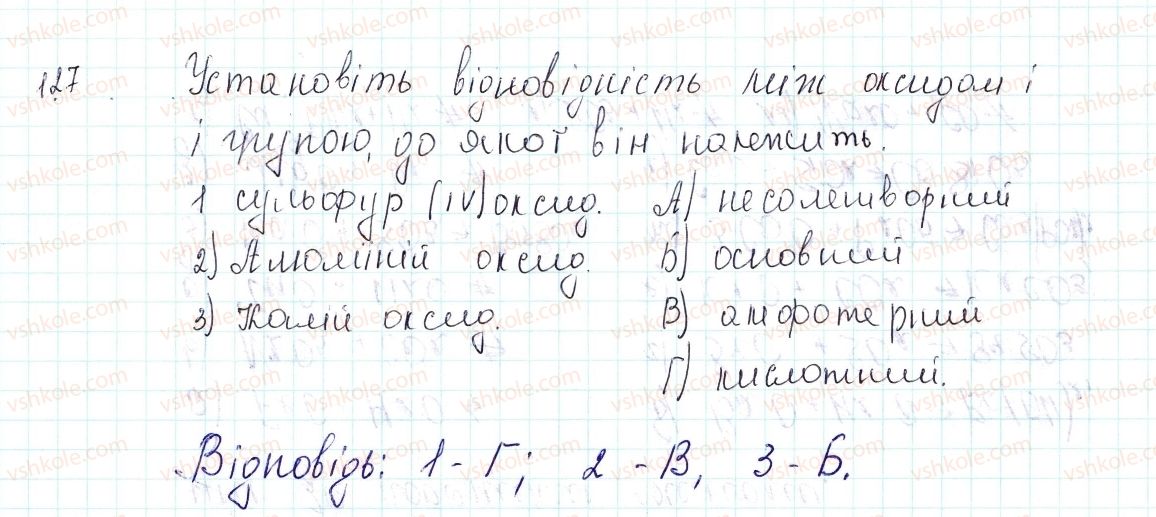 127 Установіть відповідність між оксидом і
і групою, до якої він належить.
1 сульфур (IV) оксид. А) несолетворний
2) Алюміній оксид. Б) основний
3) Калій оксид. В) амфотерний
Г) кислотний.
Відповідь: 1 - Г; 2 - В, 3 - Б.